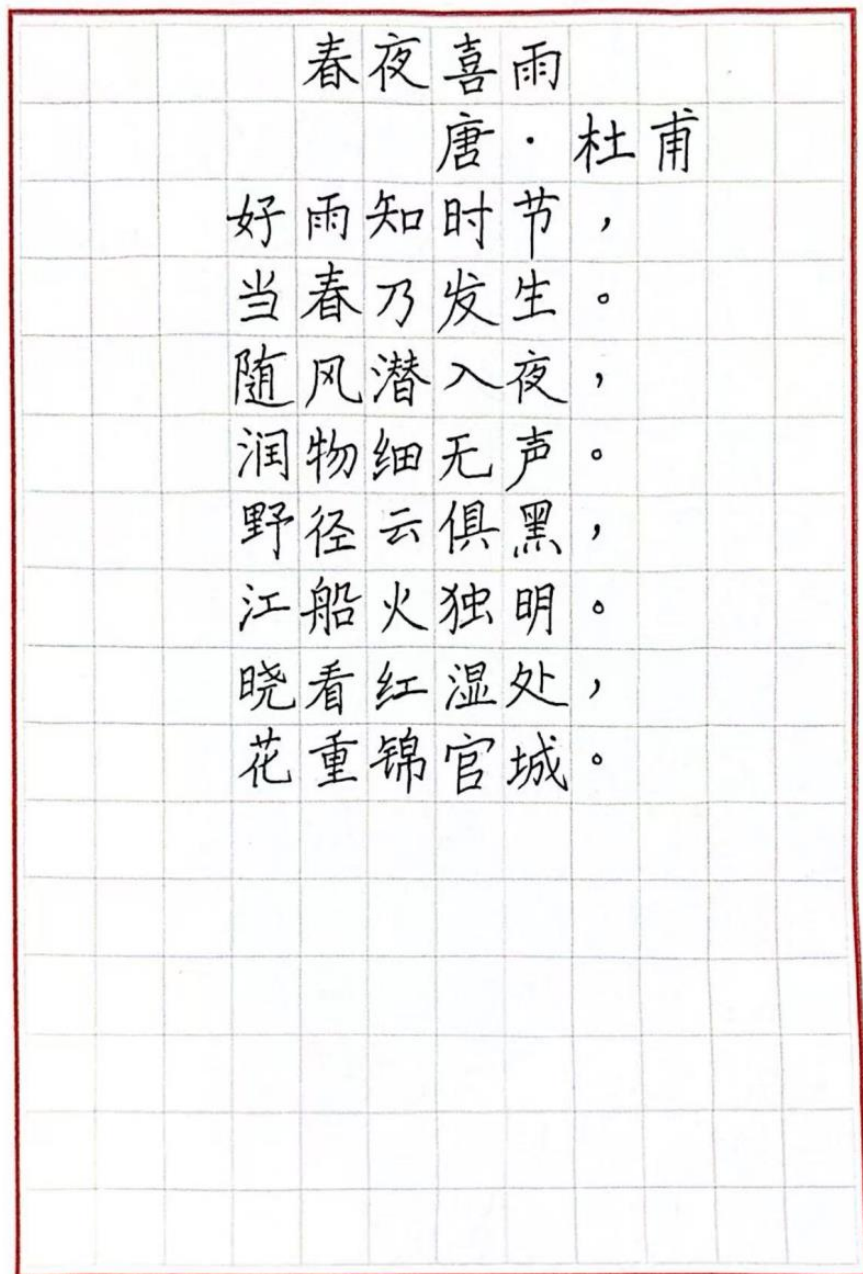 春夜喜雨
唐·杜甫
好雨知时节，
当春乃发生。
随风潜入夜，
润物细无声。
野径云俱黑，
江船火独明。
晓看红湿处，
花重锦官城。